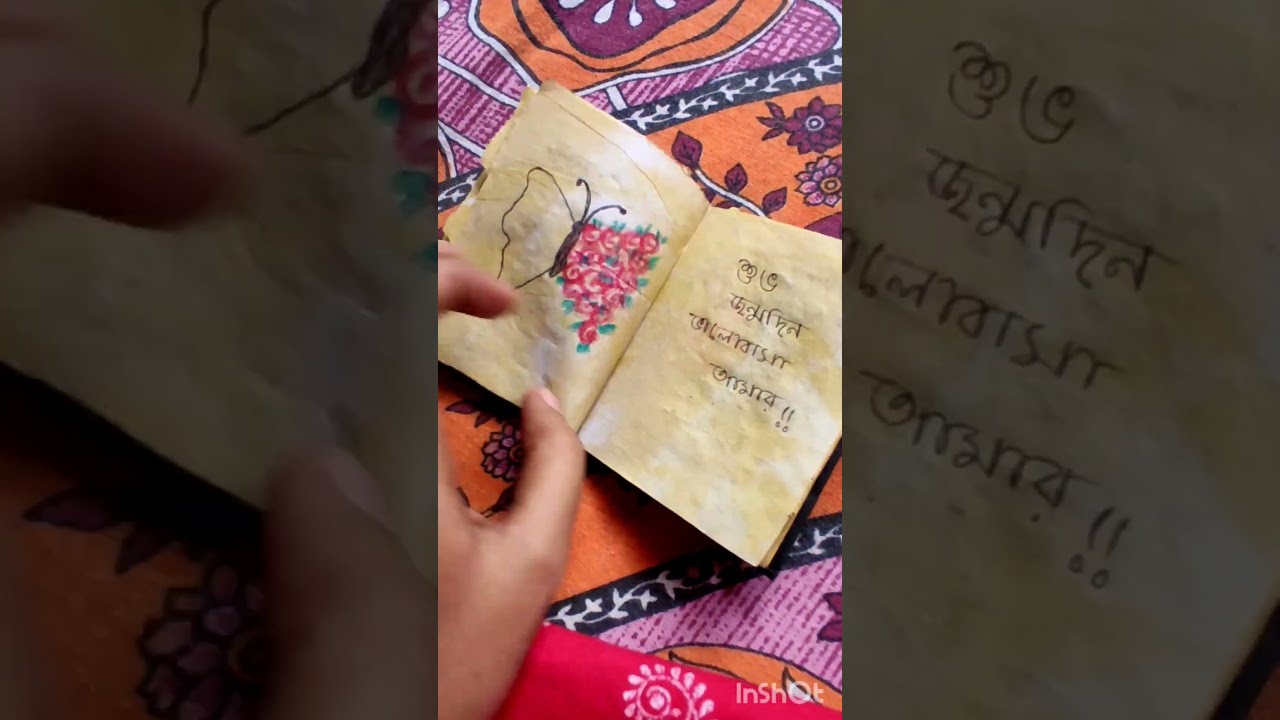 শুভ
জন্মদিন
ভালোবাসা
আমার!!
InShOt